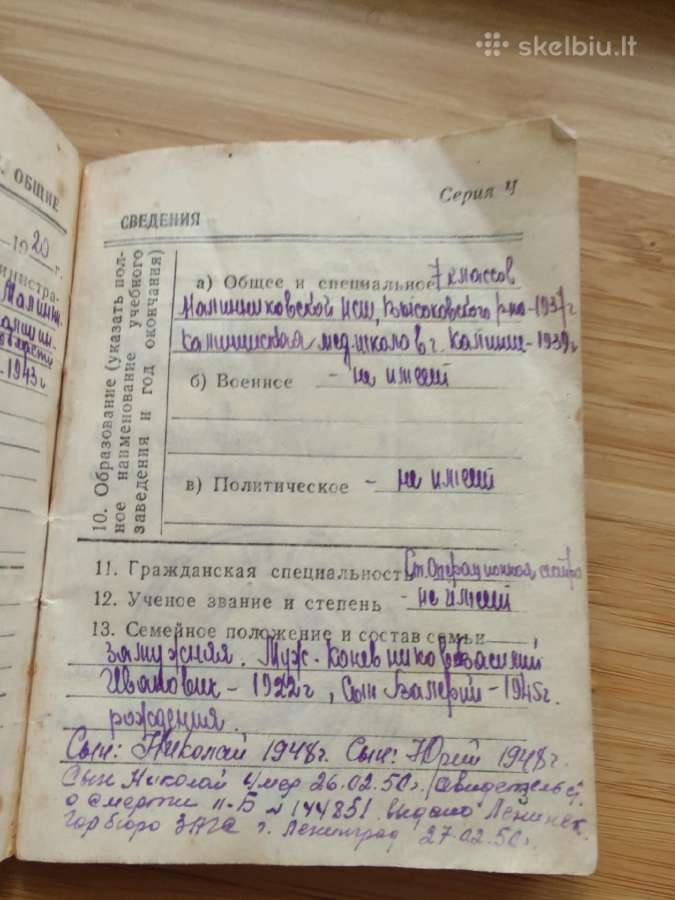 skelbiu.lt
. ОБЩИЕ
Серия Ч
СВЕДЕНИЯ
19 20 г.
1943 г
10. Образование (указать пол-
ное наименование учебного
заведения и год окончания)
а) Общее и специальное 7 классов
НСШ, Высоковского р-на - 1937г
Калининская мед. школа в г. Калинин - 1939г
б) Военное - не имеет
в) Политическое - не имеет
11. Гражданская специальность Ст. Операционная сестра
12. Ученое звание и степень - не имеет
13. Семейное положение и состав семьи
Замужняя. Муж - Коневников Василий
Иванович - 1922 г, Сын Валерий - 1945г.
рождения.
Сын: Николай 1948г. Сын: Юрий 1948г.
Сын Николай умер 26.02.50г. (свидетельст.
о смерти II-Б № 144851 выдано Ленинск.
Гор бюро ЗАГС г. Ленинград 27.02.50г.